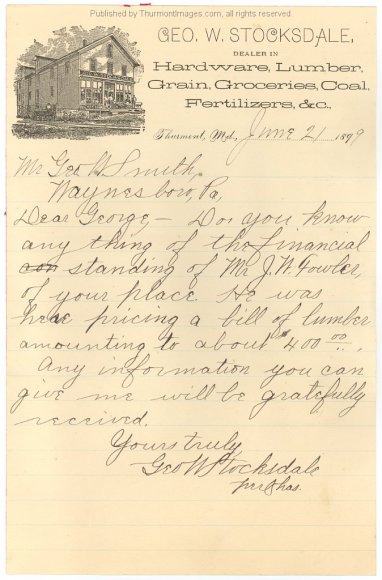 Published by ThurmontImages.com, all rights reserved
GEO. W. STOCKSDALE,
DEALER IN
Hardware, Lumber,
Grain, Groceries, Coal,
Fertilizers, &c.,
Thurmont, Md., June 21 1899
Mr Geo W Smith,
Waynesboro, Pa,
Dear George, – Do you know
any thing of the financial
standing of Mr J. W. Fowler,
of your place. He was
here pricing a bill of lumber
amounting to about $400 00.
Any information you can
give me will be gratefully
received.
Yours truly,
Geo W Stocksdale
per Chas.